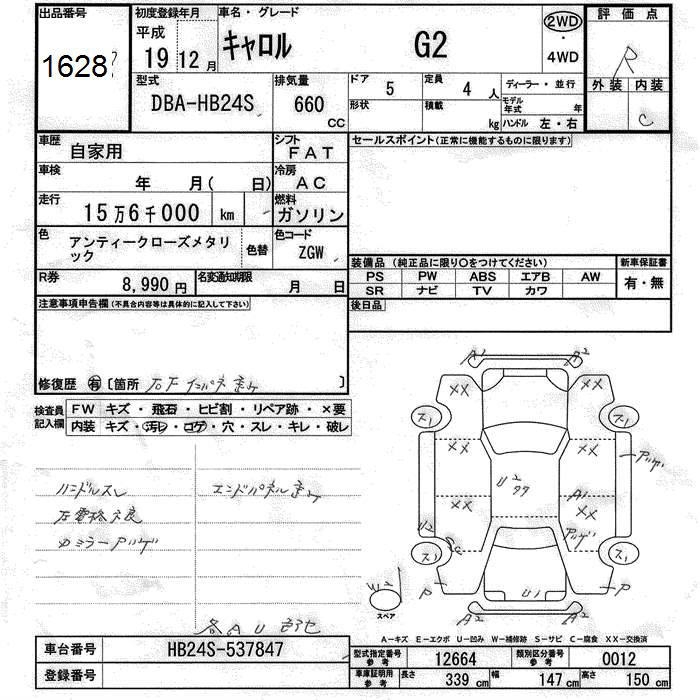 出品番号
1628
初度登録年月
平成
19 12 月
車名・グレード
キャロル G2
2WD
・
4WD
評価点
R
外装 内装
C
型式
DBA-HB24S
排気量
660
CC
ドア 5
定員 4 人
ディーラー・並行
形状
積載 kg
モデル年式 年
ハンドル 左・右
車歴
自家用
シフト
FAT
セールスポイント(正常に機能するものに限ります)
車検
年 月( 日)
冷房
AC
走行
15万6千000 km
燃料
ガソリン
色
アンティークローズメタリック
色替
色コード
ZGW
装備品 (純正品に限り○をつけてください)
新車保証書
PS PW ABS エアB AW
SR ナビ TV カワ
有・無
R券
8,990円
名変通知期限
月 日
後日品
注意事項申告欄(不具合内容等は具体的に記入して下さい)
修復歴 有 〔箇所 〕
検査員
記入欄
FW キズ・飛石・ヒビ割・リペア跡・×要
内装 キズ・汚レ・コゲ・穴・スレ・キレ・破レ
ハンドルスレ
エンドパネル
ミラー
A2 A2
XX XX
XX XX
XX XX
U2
A1
U1
P P
A2 A2
スペア
A−キズ E−エクボ U−凹み W−補修跡 S−サビ C−腐食 XX−交換済
車台番号
HB24S-537847
登録番号
型式指定番号
参考
12664
類別区分番号
参考
0012
車庫証明用
参考
長さ 339 cm
幅 147 cm
高さ 150 cm